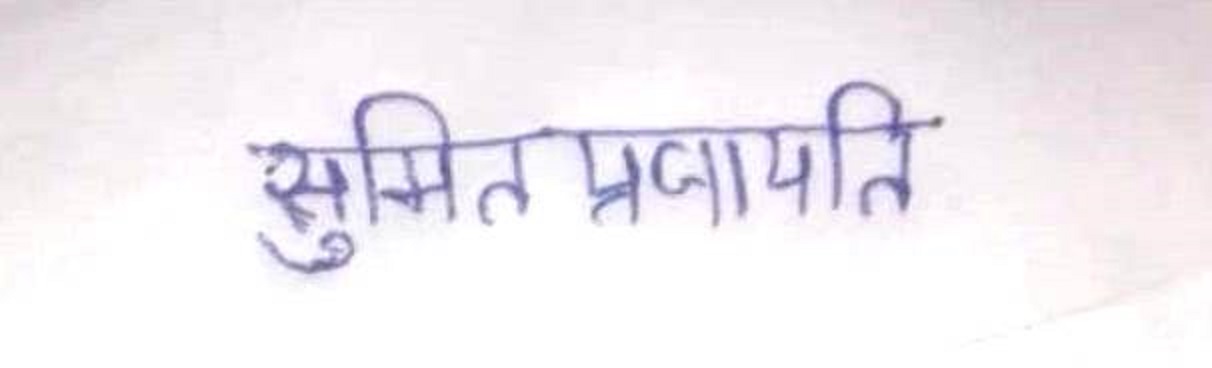 सुमित प्रजापति